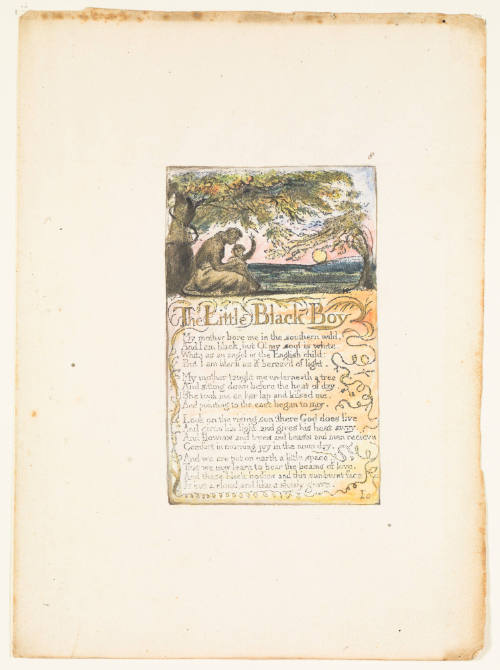 8
The Little Black Boy
My mother bore me in the southern wild,
And I am black, but O! my soul is white
White as an angel is the English child:
But I am black as if bereav'd of light.
My mother taught me underneath a tree
And sitting down before the heat of day
She took me on her lap and kissed me,
And pointing to the east began to say.
Look on the rising sun: there God does live
And gives his light, and gives his heat away.
And flowers and trees and beasts and men receive
Comfort in morning joy in the noon day.
And we are put on earth a little space
That we may learn to bear the beams of love,
And these black bodies and this sunburnt face
Is but a cloud, and like a shady grove.